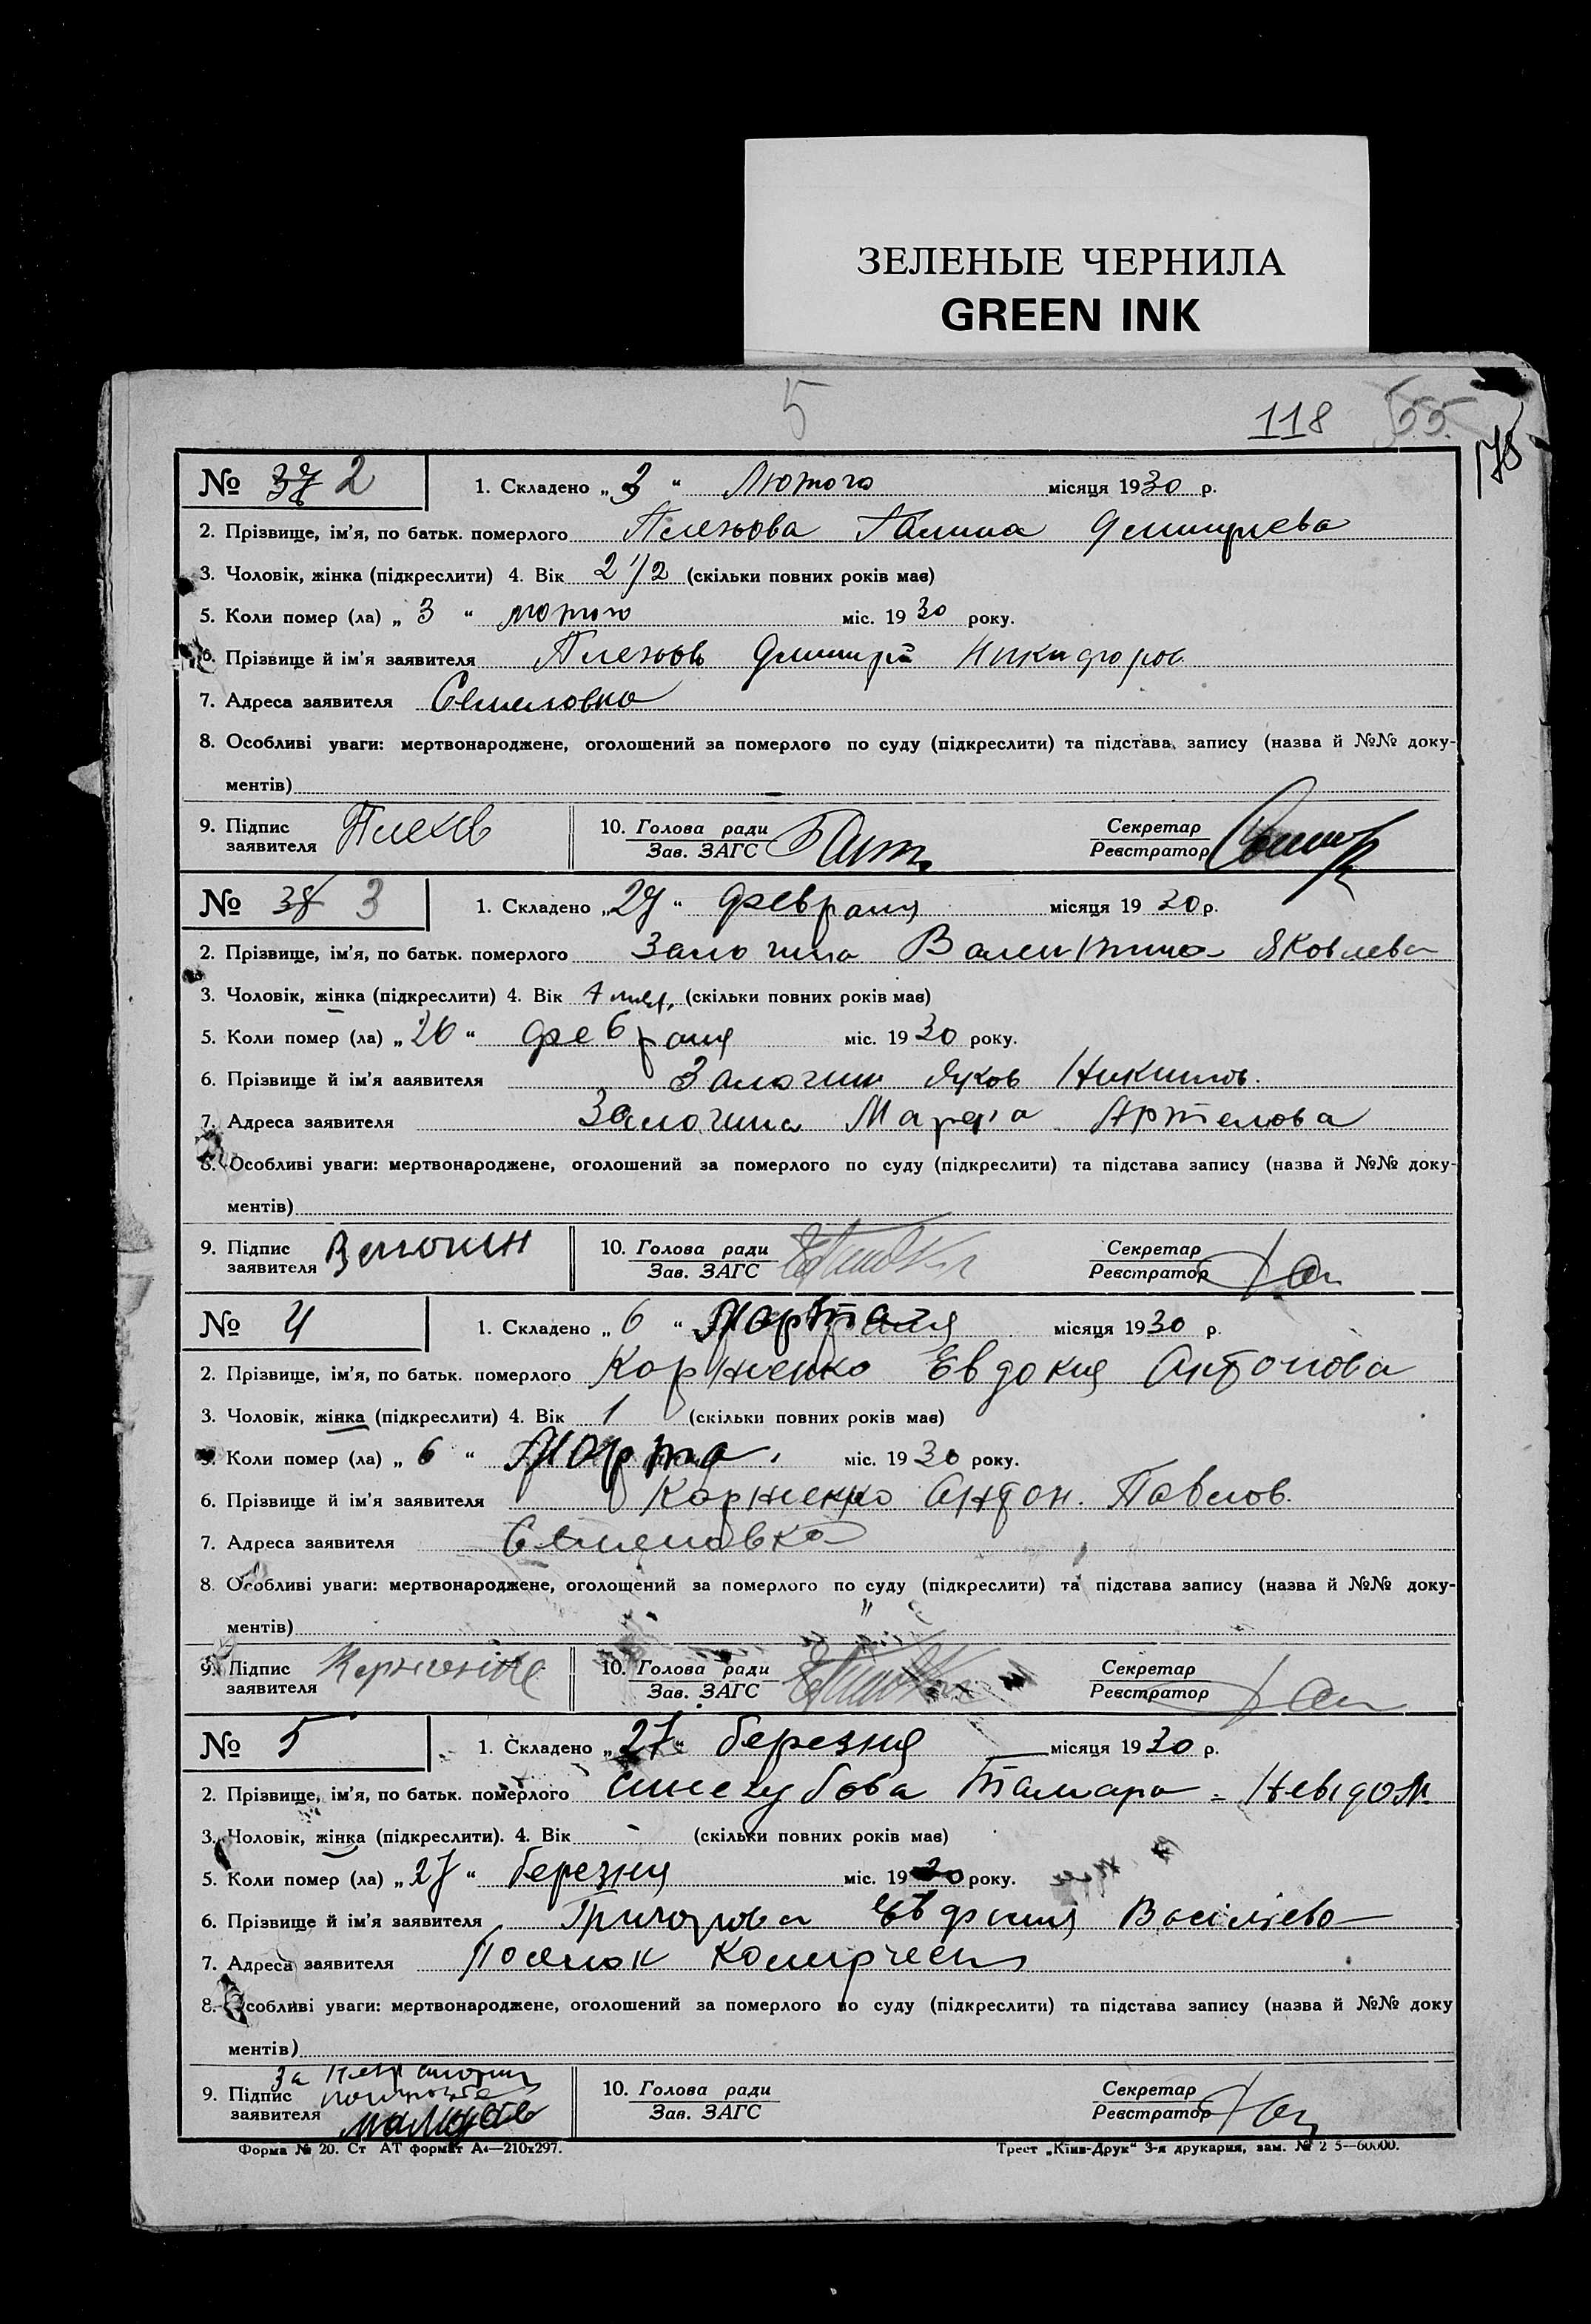 ЗЕЛЕНЫЕ ЧЕРНИЛА
GREEN INK
5
118 55
175
№ 37 2 1. Складено „3“ Лютого місяця 1930 р.
2. Прізвище, ім'я, по батьк. померлого Плехова Галина Дмитриева
3. Чоловік, жінка (підкреслити) 4. Вік 2 1/2 (скільки повних років має)
5. Коли помер (ла) „3“ лютого міс. 1930 року.
6. Прізвище й ім'я заявителя Плехов Дмитрій Никифоров
7. Адреса заявителя Семеновка
8. Особливі уваги: мертвонароджене, оголошений за померлого по суду (підкреслити) та підстава запису (назва й №№ доку-
ментів)
9. Підпис заявителя Плехов 10. Голова ради Зав. ЗАГС Секретар Реєстратор
№ 38 3 1. Складено „27“ февраля місяця 1930 р.
2. Прізвище, ім'я, по батьк. померлого Залогина Валентина Яковлева
3. Чоловік, жінка (підкреслити) 4. Вік (скільки повних років має)
5. Коли помер (ла) „26“ февраля міс. 1930 року.
6. Прізвище й ім'я заявителя Залогин Яков Никитов.
7. Адреса заявителя Залогина Марфа Артемова
8. Особливі уваги: мертвонароджене, оголошений за померлого по суду (підкреслити) та підстава запису (назва й №№ доку-
ментів)
9. Підпис заявителя 10. Голова ради Зав. ЗАГС Секретар Реєстратор
№ 4 1. Складено „6“ Марта місяця 1930 р.
2. Прізвище, ім'я, по батьк. померлого Корниенко Евдокия Антонова
3. Чоловік, жінка (підкреслити) 4. Вік 1 (скільки повних років має)
5. Коли помер (ла) „6“ Марта міс. 1930 року.
6. Прізвище й ім'я заявителя Корниенко Антон. Павлов.
7. Адреса заявителя Семеновка
8. Особливі уваги: мертвонароджене, оголошений за померлого по суду (підкреслити) та підстава запису (назва й №№ доку-
ментів)
9. Підпис заявителя 10. Голова ради Зав. ЗАГС Секретар Реєстратор
№ 5 1. Складено „27“ березня місяця 1930 р.
2. Прізвище, ім'я, по батьк. померлого Синегубова Тамара - Невідом.
3. Чоловік, жінка (підкреслити). 4. Вік - (скільки повних років має)
5. Коли помер (ла) „27“ березня міс. 1930 року.
6. Прізвище й ім'я заявителя Васілієва
7. Адреса заявителя Посьолок
8. Особливі уваги: мертвонароджене, оголошений за померлого по суду (підкреслити) та підстава запису (назва й №№ доку
ментів)
9. Підпис заявителя За 10. Голова ради Зав. ЗАГС Секретар Реєстратор
Форма № 20. Ст АТ формат А4—210x297. Трест „Київ-Друк“ 3-я друкарня, зам. №